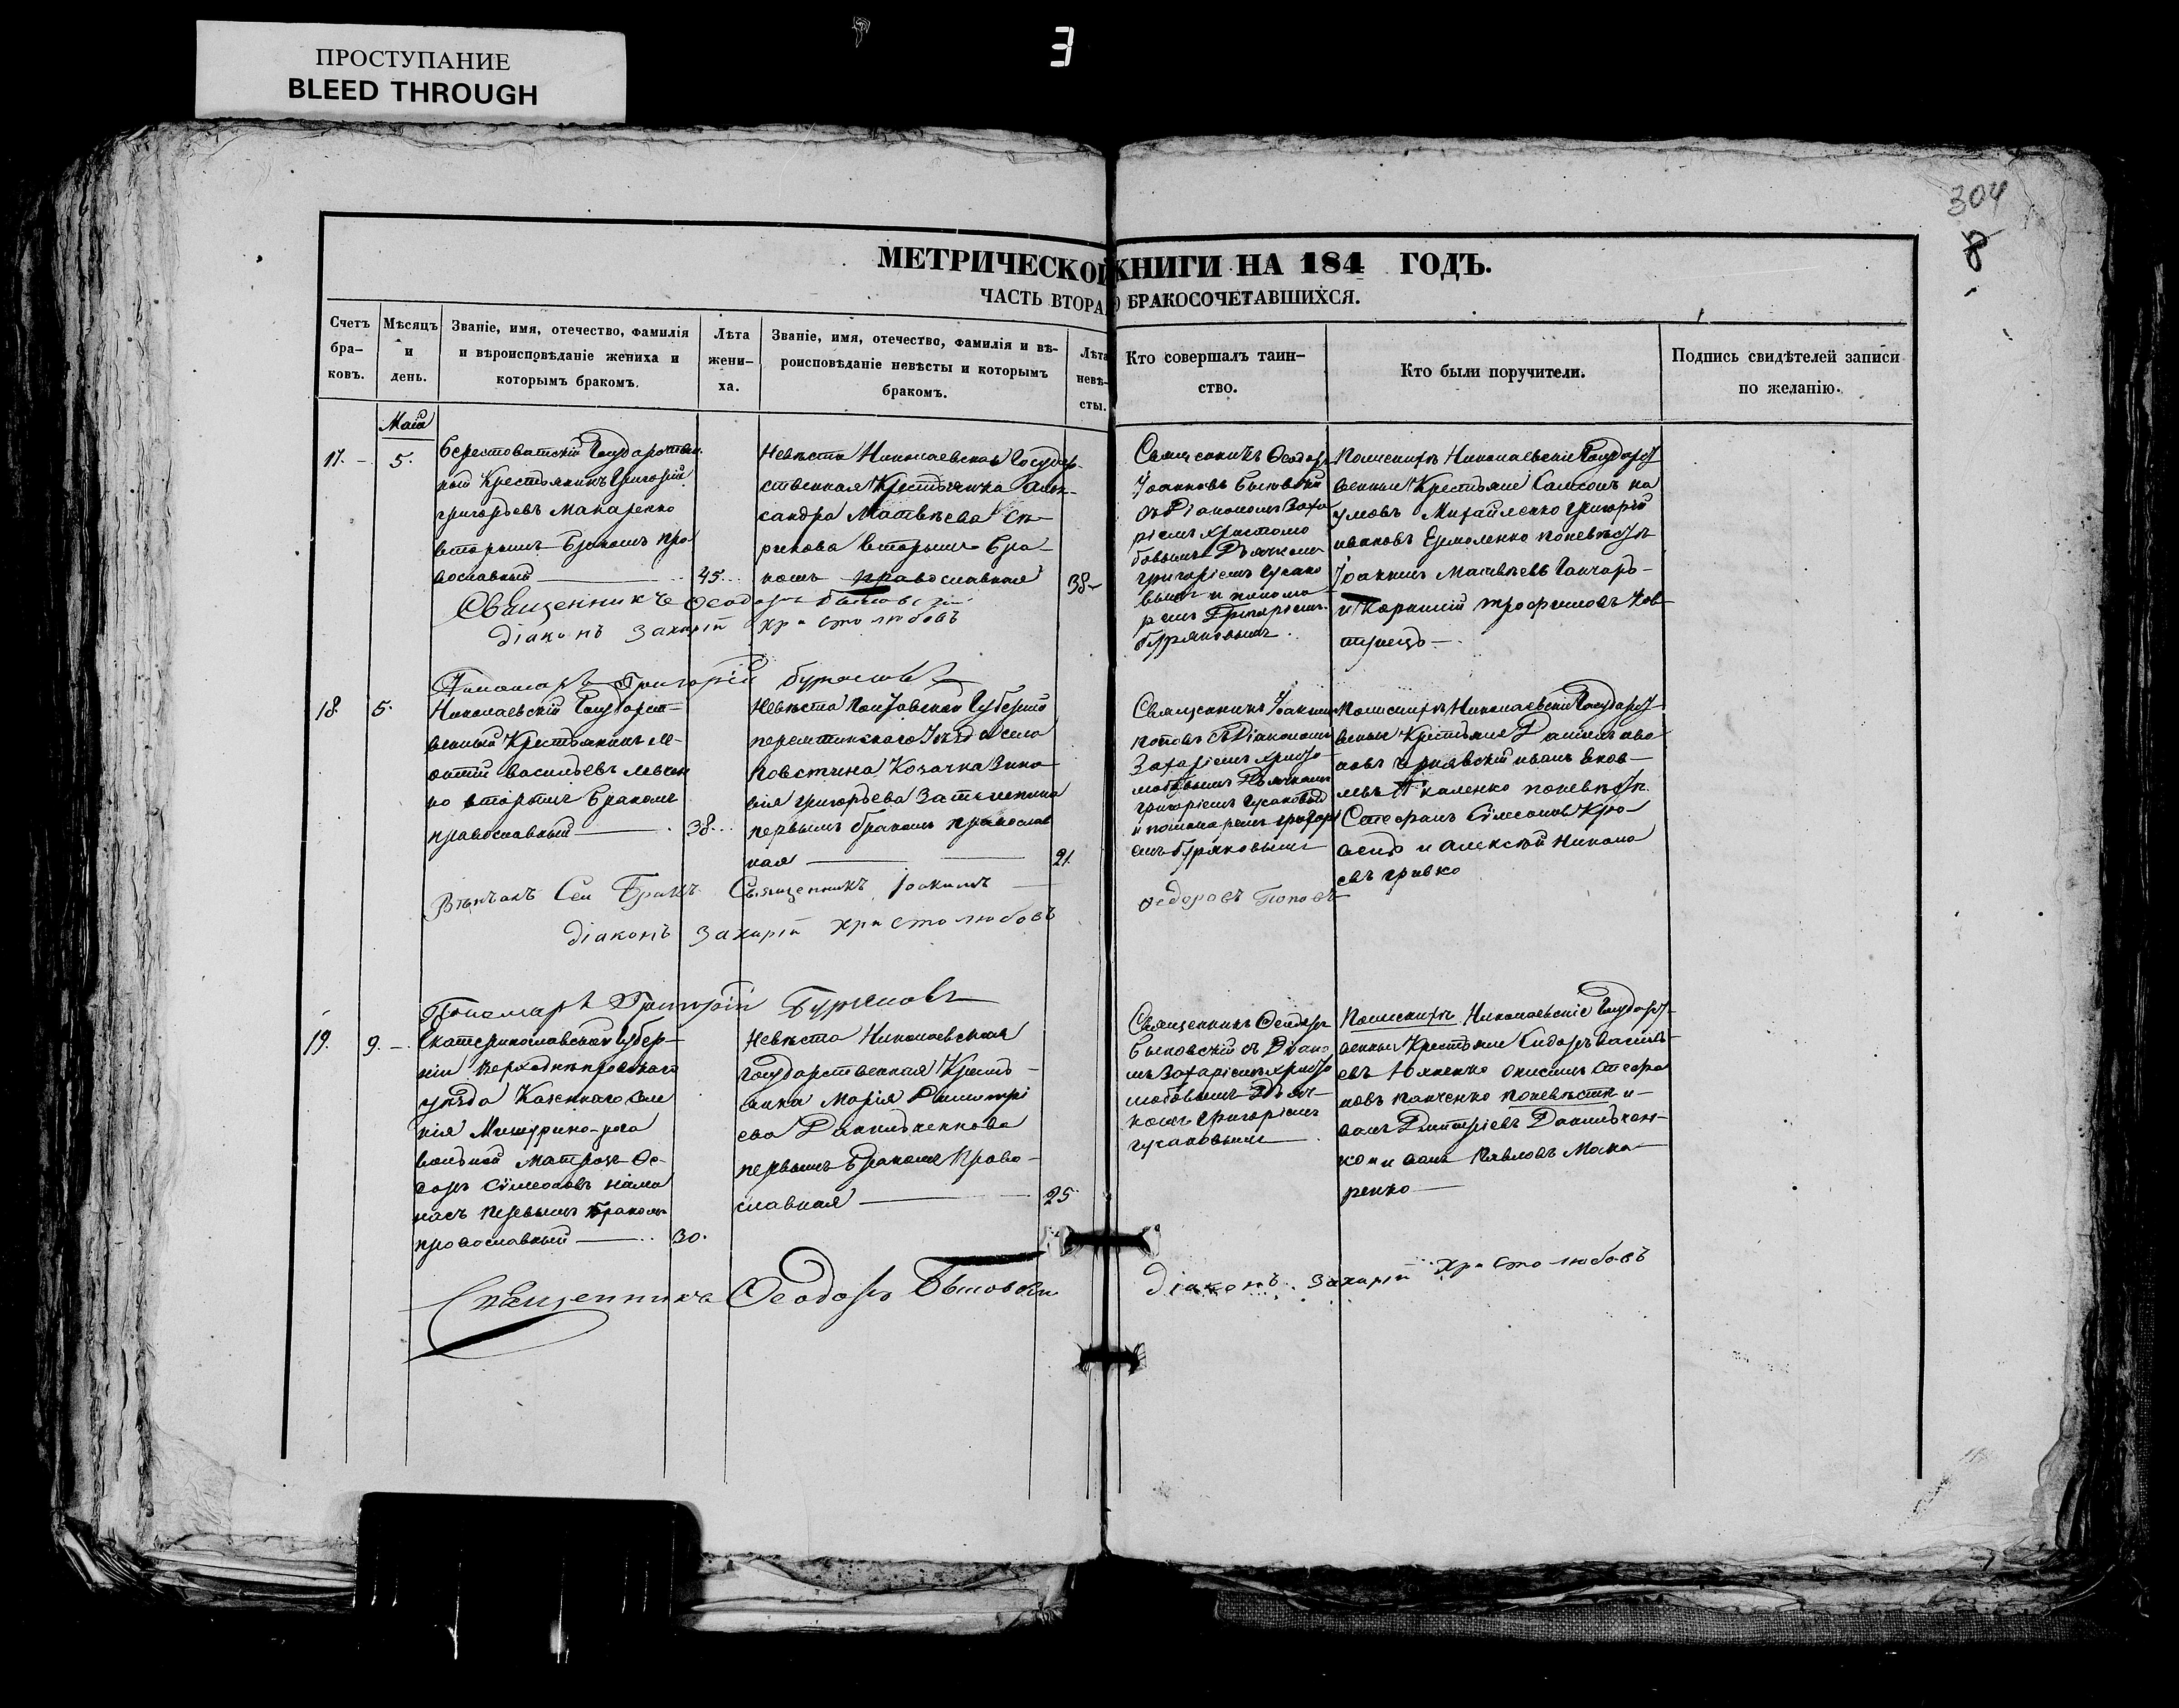 ПРОСТУПАНИЕ
BLEED THROUGH
3
304
8
МЕТРИЧЕСКОЙ КНИГИ НА 184 ГОДЪ.
ЧАСТЬ ВТОРАЯ О БРАКОСОЧЕТАВШИХСЯ.
Счетъ бра-ковъ.
Мѣсяцъ и день.
Званіе, имя, отечество, фамилія и вѣроисповѣданіе жениха и которымъ бракомъ.
Лѣта жени-ха.
Званіе, имя, отечество, фамилія и вѣ-роисповѣданіе невѣсты и которымъ бракомъ.
Лѣта невѣ-сты.
Кто совершалъ таин-ство.
Кто были поручители.
Подпись свидѣтелей записи по желанію.
Маія
17. 5.
Берестоватскій Государствен-
ный Крестьянинъ Григорій
Григорьевъ Макаренко
вторымъ бракомъ пра-
вославный 45.
Невѣста Николаевская Государ-
ственная Крестьянка Алек-
сандра Матвѣева
вторымъ бра-
комъ православная 38
Священникъ Ѳеодоръ
Іоанновъ Быковскій
съ Діакономъ Заха-
ріемъ Христолю-
бовымъ Дьячкомъ
Григоріемъ Гусако-
вымъ и понома-
ремъ Григоріемъ
Буряковымъ
По женихѣ Николаевскіе Государст-
венные Крестьяне Самсонъ На-
умовъ Михайленко Григорій
Ивановъ Ермоленко по невѣстѣ
Іоаннъ Матвѣевъ Гончаръ
и Корнилій Трофимовъ Ков-
Священникъ Ѳеодоръ Быковскій
Діаконъ Захарій Христолюбовъ
Пономарь Григорій Буряковъ
18. 5.
Николаевскій Государст-
венный Крестьянинъ Ле-
онтій Васильевъ Левчен-
ко вторымъ бракомъ
православный 38.
Невѣста Полтавской Губерніи
уѣзда села
Повстина Козачка Зино-
вія Григорьева
первымъ бракомъ православ
ная 21.
Священникъ Іоакимъ
Поповъ съ Діакономъ
Захаріемъ Христо-
любовымъ Дьячкомъ
Григоріемъ Гусаковым
и пономаремъ Григорі
емъ Буряковымъ
По женихѣ Николаевскіе Государст-
венные Крестьяне Даніилъ Ива-
новъ Чернявскій Иванъ Яков-
левъ Ткаленко по невѣстѣ
Стефанъ Сѵмеоновъ
и Алексѣй Никола
евъ Гривко
Вѣнчалъ сей Бракъ Священникъ Іоакимъ
Ѳедоровъ Поповъ
Діаконъ Захарій Христолюбовъ
Пономарь Григорій Буряковъ
19. 9.
Екатеринославской Губер-
ніи Верходнѣпровскаго
уѣзда Казеннаго селе
нія Мишурино-рога
вольной матросъ Ѳе-
доръ Сѵмеоновъ
первымъ бракомъ
православный 30.
Невѣста Николаевская
Государственная Кресть-
янка Марія Димитрі
ева Данильченкова
первымъ бракомъ Право-
славная 25
Священникъ Ѳеодоръ
Быковскій съ Діако
мъ Захаріемъ Христо
любовымъ Дьяч-
комъ Григоріемъ
Гусаковымъ
По женихѣ Николаевскіе Государст-
венные Крестьяне Сидоръ Василь-
евъ Юхненко Онисимъ Стефа
новъ Панченко по невѣстѣ и-
ванъ Димитріевъ Данильчен-
ко и Иванъ Павловъ Мака-
ренко
Священникъ Ѳеодоръ Быковскій
Діаконъ Захарій Христолюбовъ